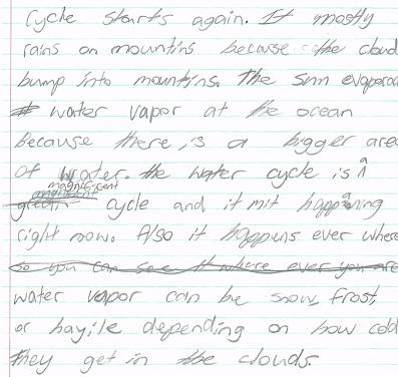 cycle starts again. It mostly
rains on mountins because the cloud
bump into mountins. The sun evaporac
water vapor at the ocean
because there is a bigger area
of water. the water cycle is ^
magnificent
cycle and it mit happening
right now. Also it happens ever where
so you can see it where ever you are
water vapor can be snow, frost,
or hayile depending on how cold
they get in the clouds.